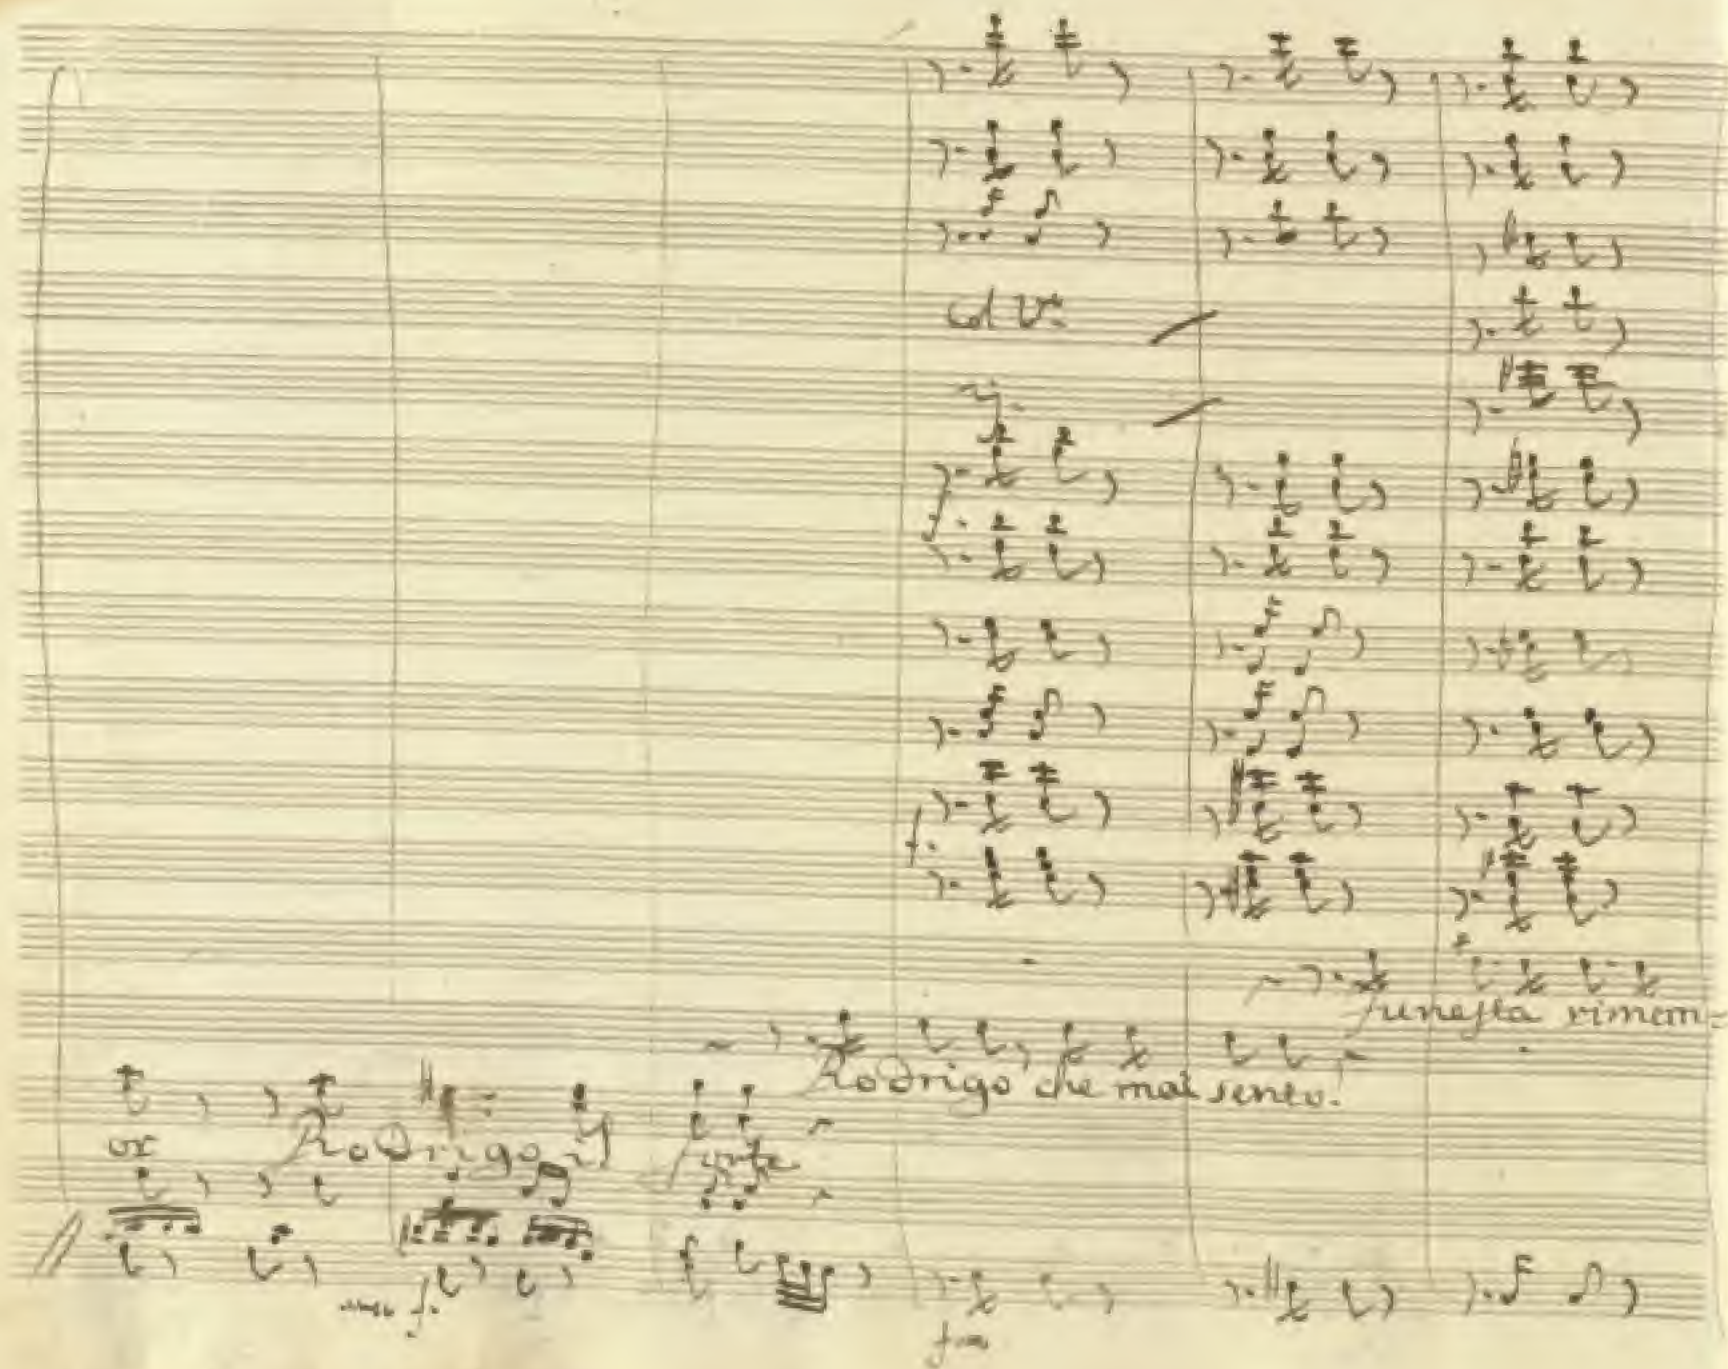 col Vⁿⁱ
f.
f.
funesta rimem=
Rodrigo che mai sento!
or Rodrigo il forte
f.